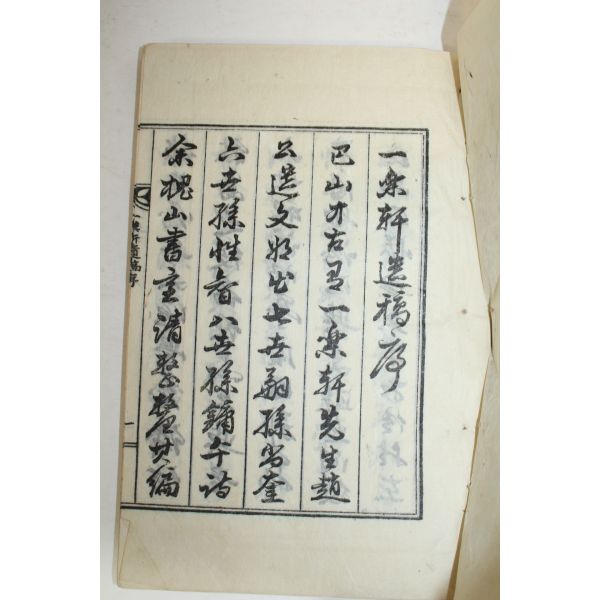 一樂軒遺稿序
巴山才古有一樂軒先生趙
公遺文如干七世嗣孫尚奎
六世孫性睿八世孫鏞午詩
余槐山書室請整釐其編
一樂軒遺稿序
一